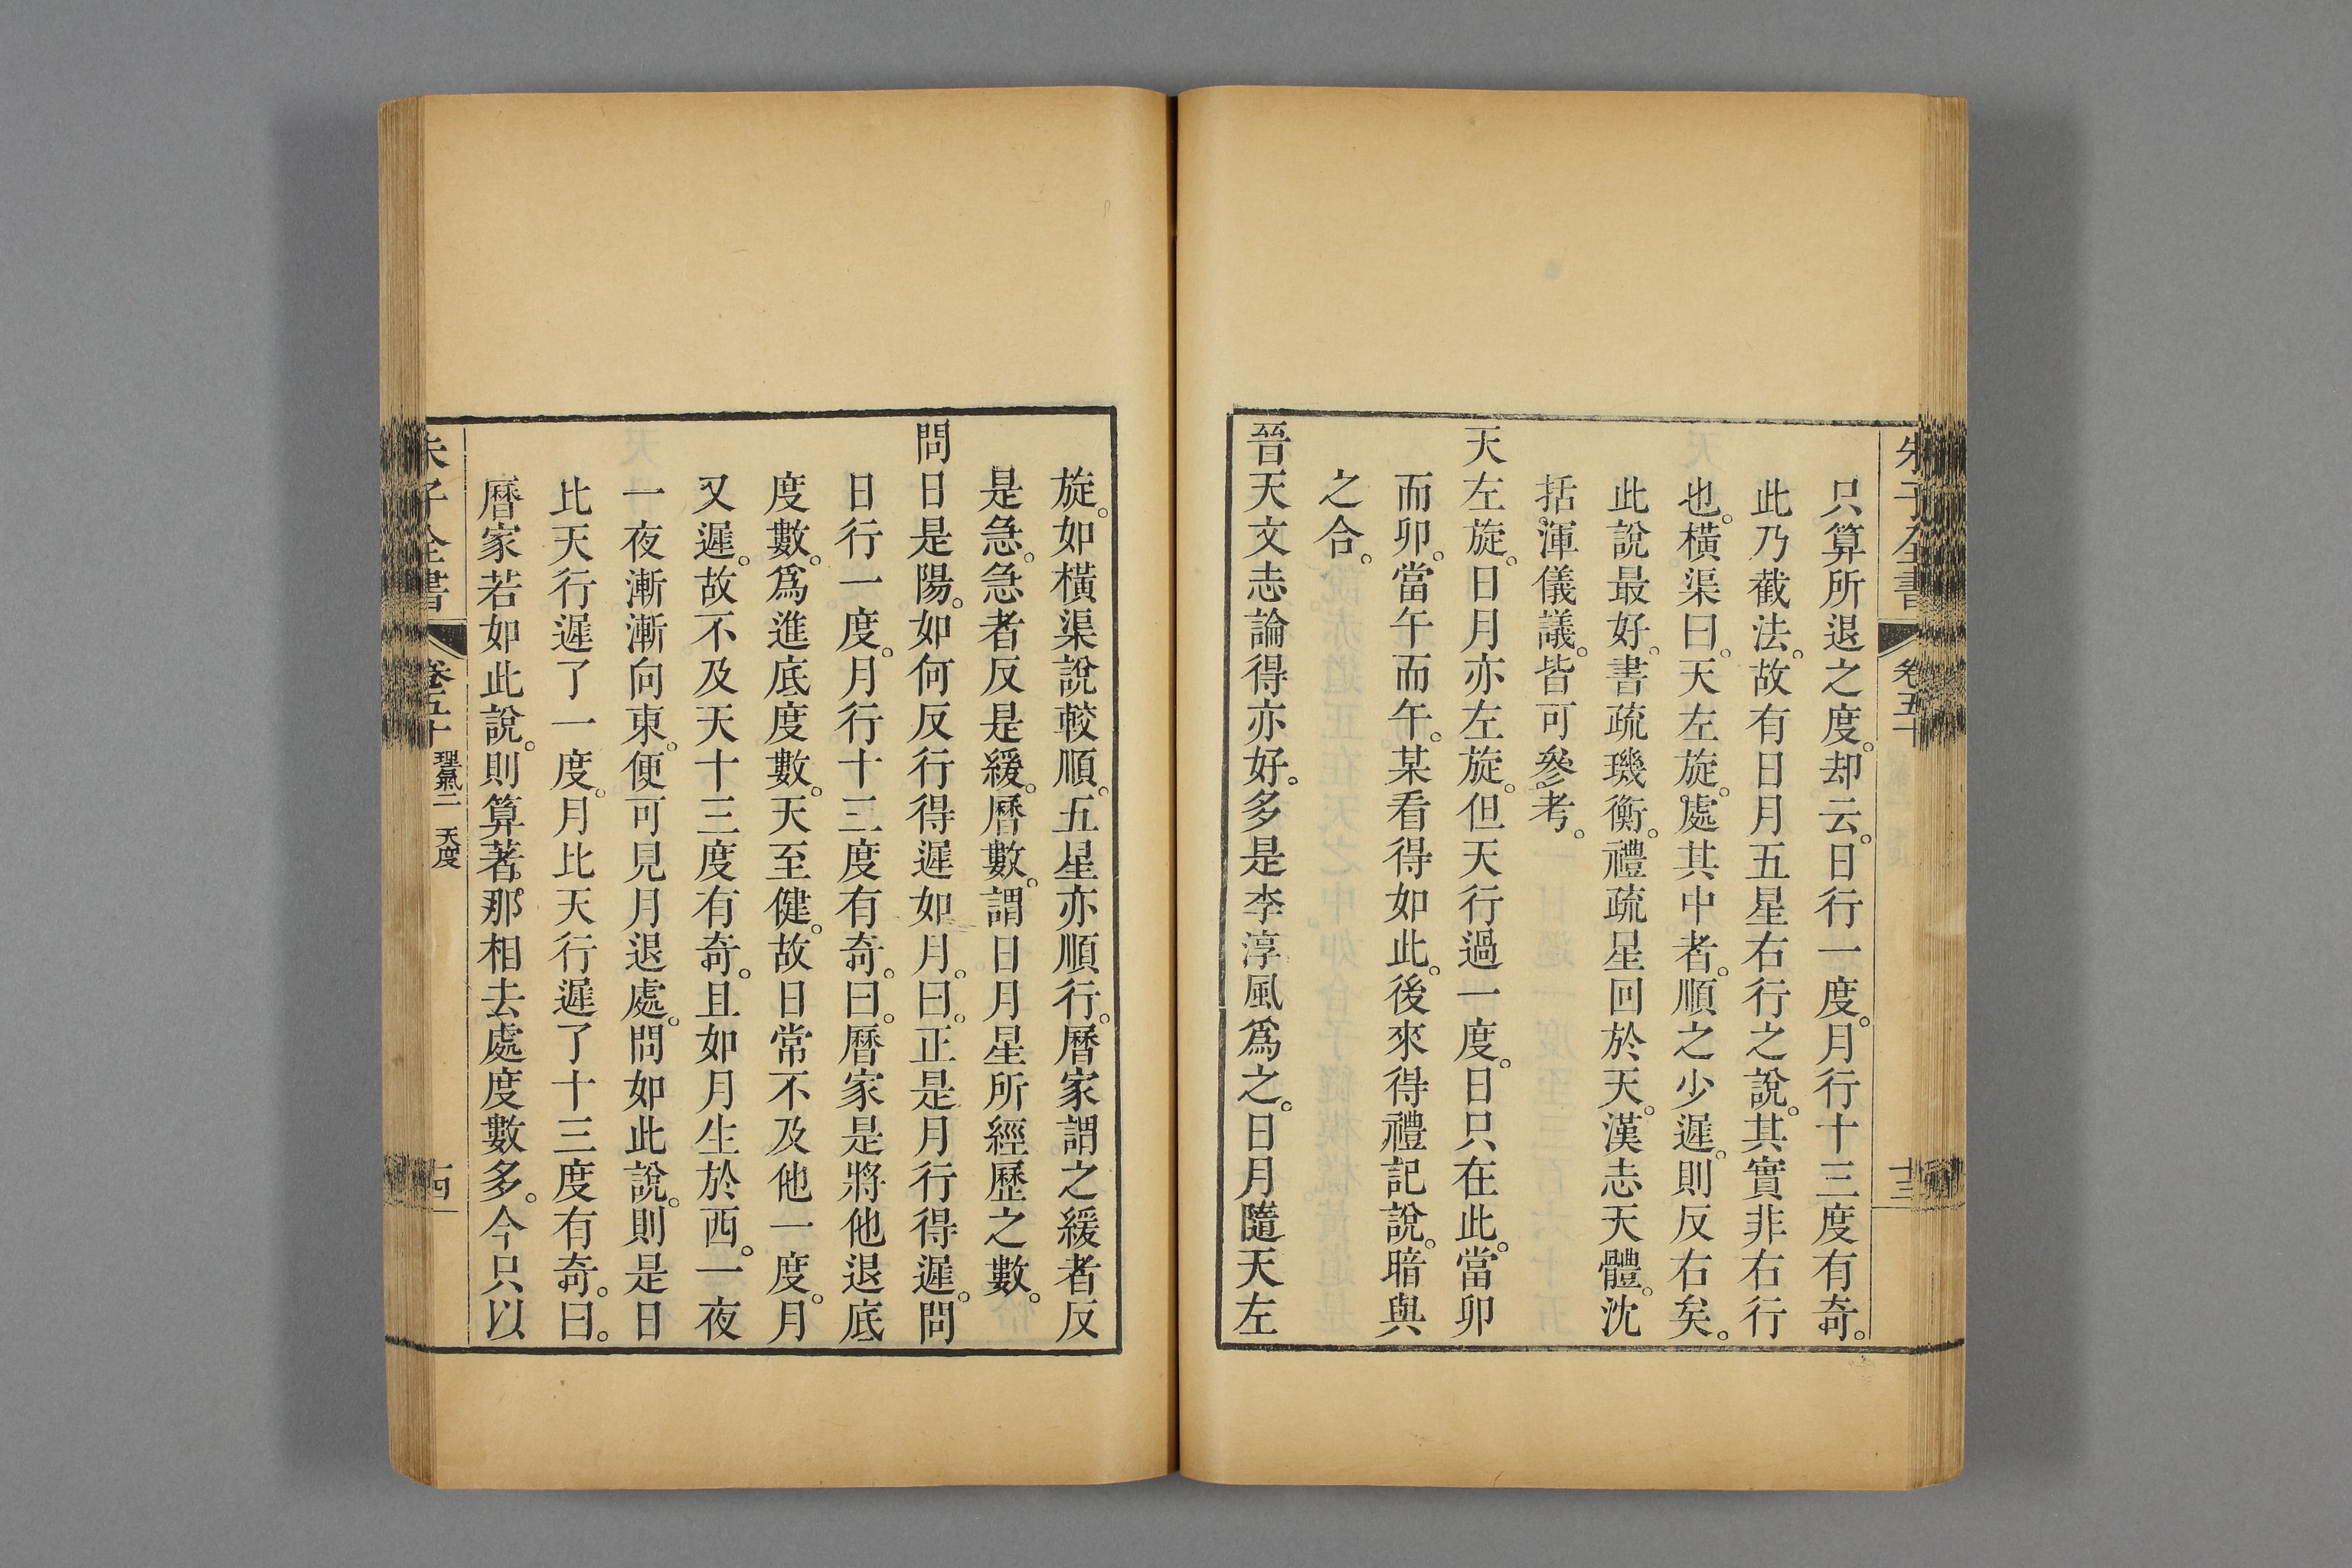 朱子全書 卷五十 十三
只算所退之度。却云。日行一度。月行十三度有奇。
此乃截法。故有日月五星右行之說。其實非右行
也。橫渠曰。天左旋。處其中者。順之少遲。則反右矣。
此說最好。書疏璣衡。禮疏星回於天。漢志天體。沈
括渾儀議。皆可參考。
天左旋。日月亦左旋。但天行過一度。日只在此。當卯
而卯。當午而午。某看得如此。後來得禮記說。暗與
之合。
晉天文志論得亦好。多是李淳風爲之。日月隨天左
旋。如橫渠說較順。五星亦順行。曆家謂之緩者反
是急。急者反是緩。曆數。謂日月星所經歷之數。
問日是陽。如何反行得遲如月。曰。正是月行得遲。問
日行一度。月行十三度有奇。曰。曆家是將他退底
度數。爲進底度數。天至健。故日常不及他一度。月
又遲。故不及天十三度有奇。且如月生於西。一夜
一夜漸漸向東。便可見月退處。問如此說。則是日
比天行遲了一度。月比天行遲了十三度有奇。曰。
曆家若如此說。則算著。那相去處度數多。今只以
朱子全書 卷五十 理氣二 天度 十四